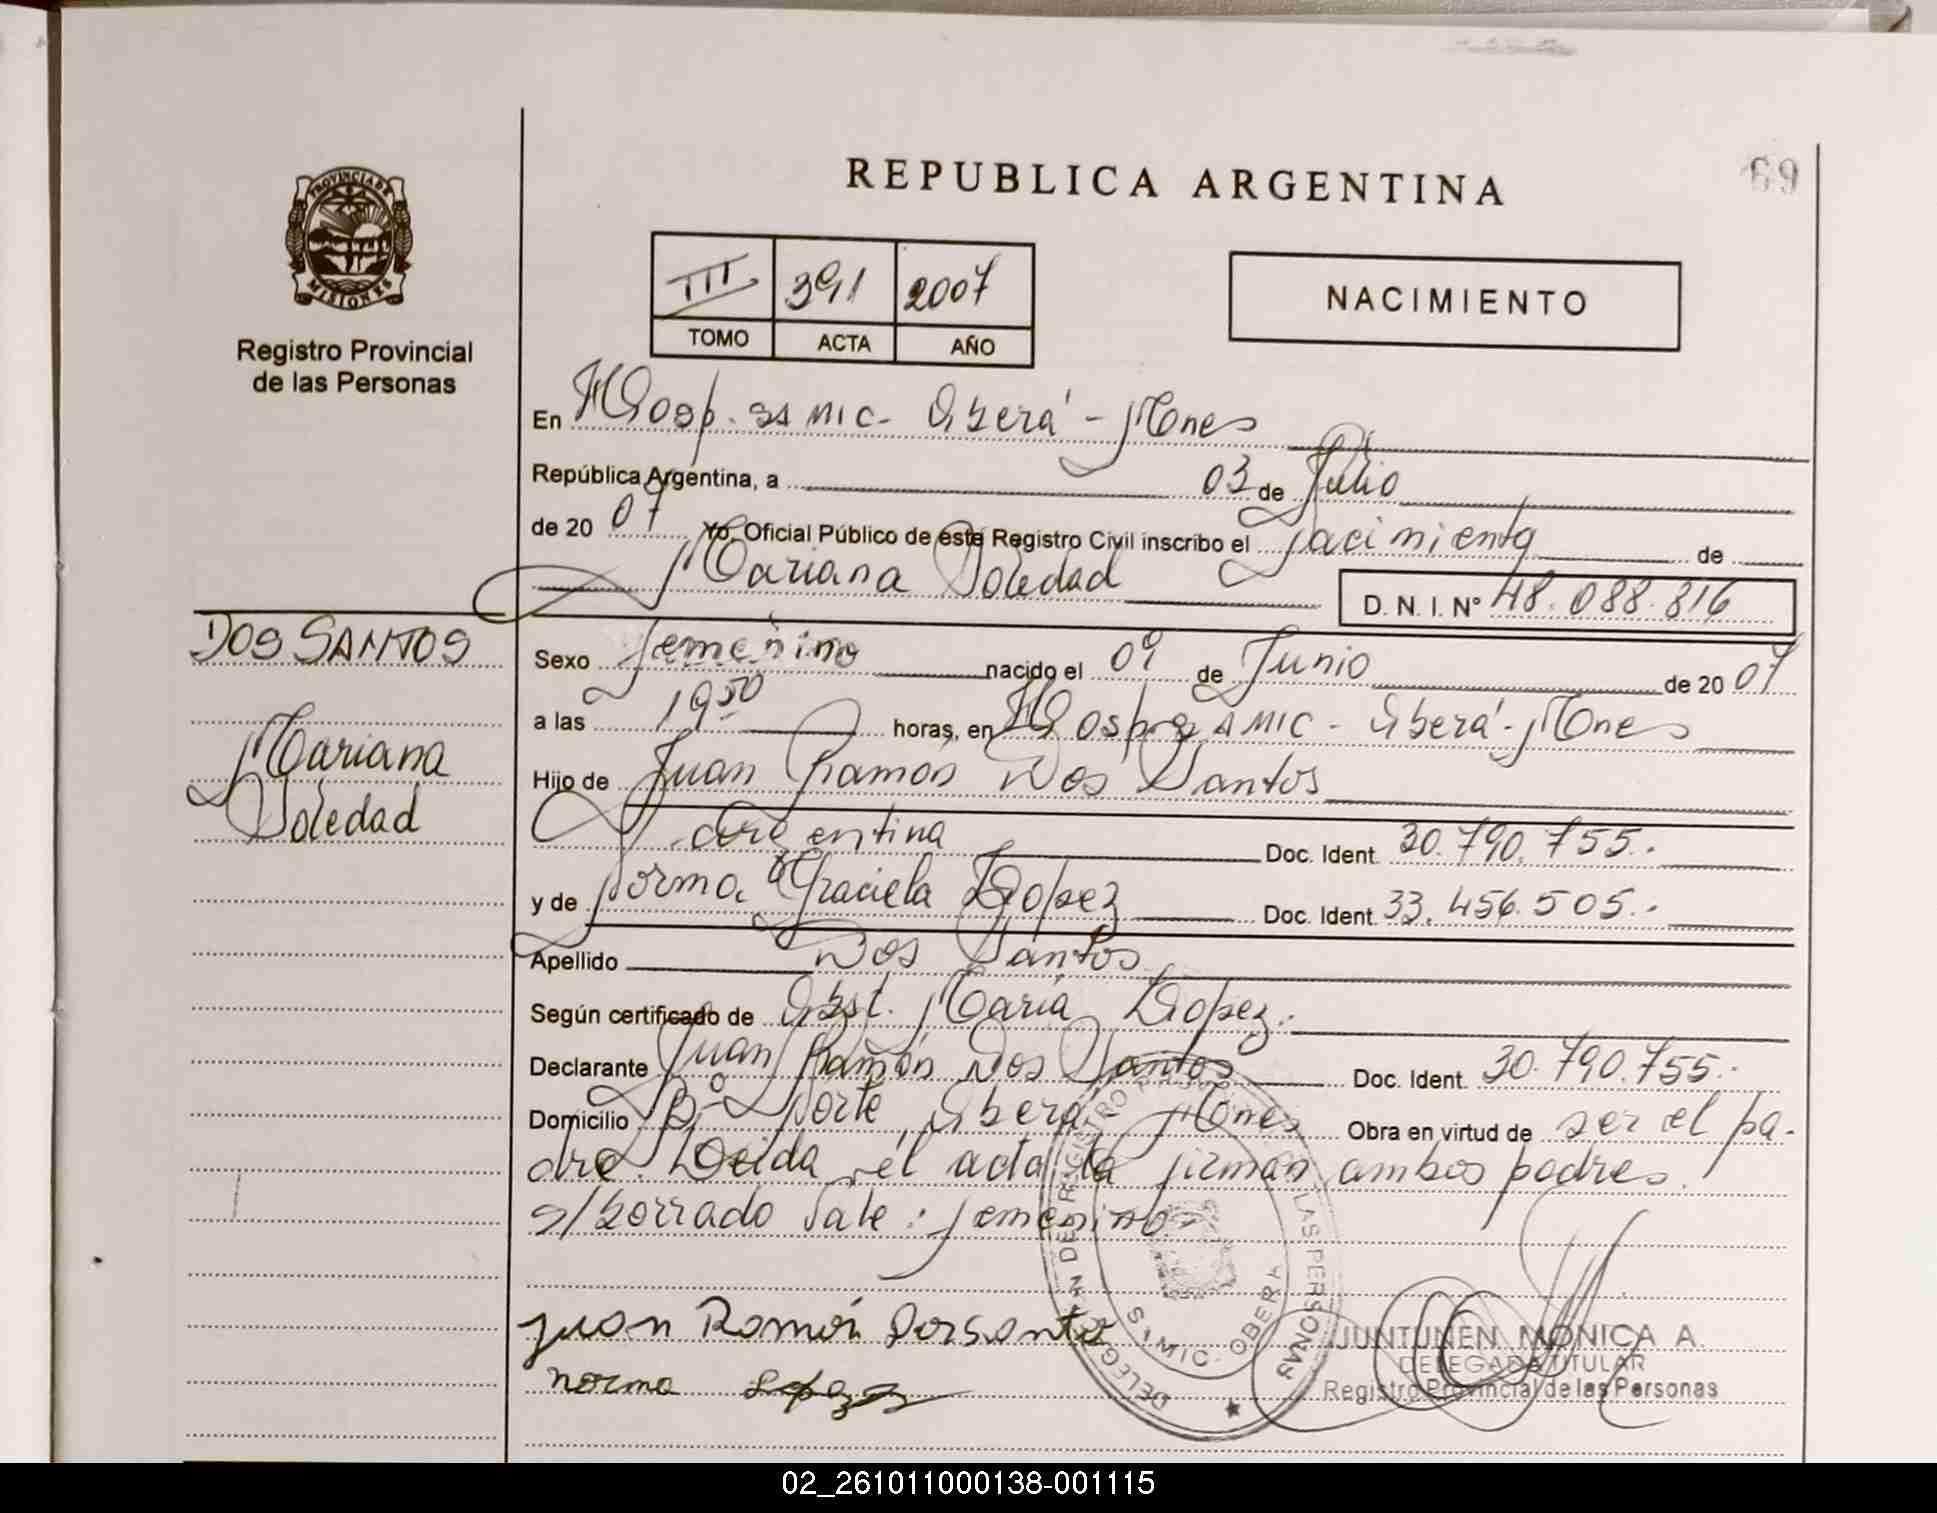 REPUBLICA ARGENTINA
69
PROVINCIA DE
MISIONES
Registro Provincial
de las Personas
III 391 2007
TOMO ACTA AÑO
NACIMIENTO
En Hosp. SAMIC - Oberá - Mnes
República Argentina, a 03 de Julio
de 20 07 Yo, Oficial Público de este Registro Civil inscribo el Nacimiento de
Mariana Soledad D. N. I. Nº 48.088.816
DOS SANTOS
Mariana
Soledad
Sexo femenino nacido el 09 de Junio de 20 07
a las 19 50 horas, en Hosp. SAMIC - Oberá - Mnes
Hijo de Juan Ramón Dos Santos
Argentina Doc. Ident. 30.790.755.-
y de Norma Graciela Lopez Doc. Ident. 33.456.505.-
Apellido Dos Santos
Según certificado de Obst. María Lopez.
Declarante Juan Ramón Dos Santos Doc. Ident. 30.790.755.-
Domicilio Bº Norte, Oberá - Mnes Obra en virtud de ser el pa-
dre. Leída el acta la firman ambos padres.
s/borrado Vale: femenino.
Juan Ramón Dossantos
Norma Lopez
DELEGACION DE REGISTRO PROVINCIAL DE LAS PERSONAS
SAMIC. OBERA
JUNTUNEN MONICA A.
DELEGADA TITULAR
Registro Provincial de las Personas
02_261011000138-001115